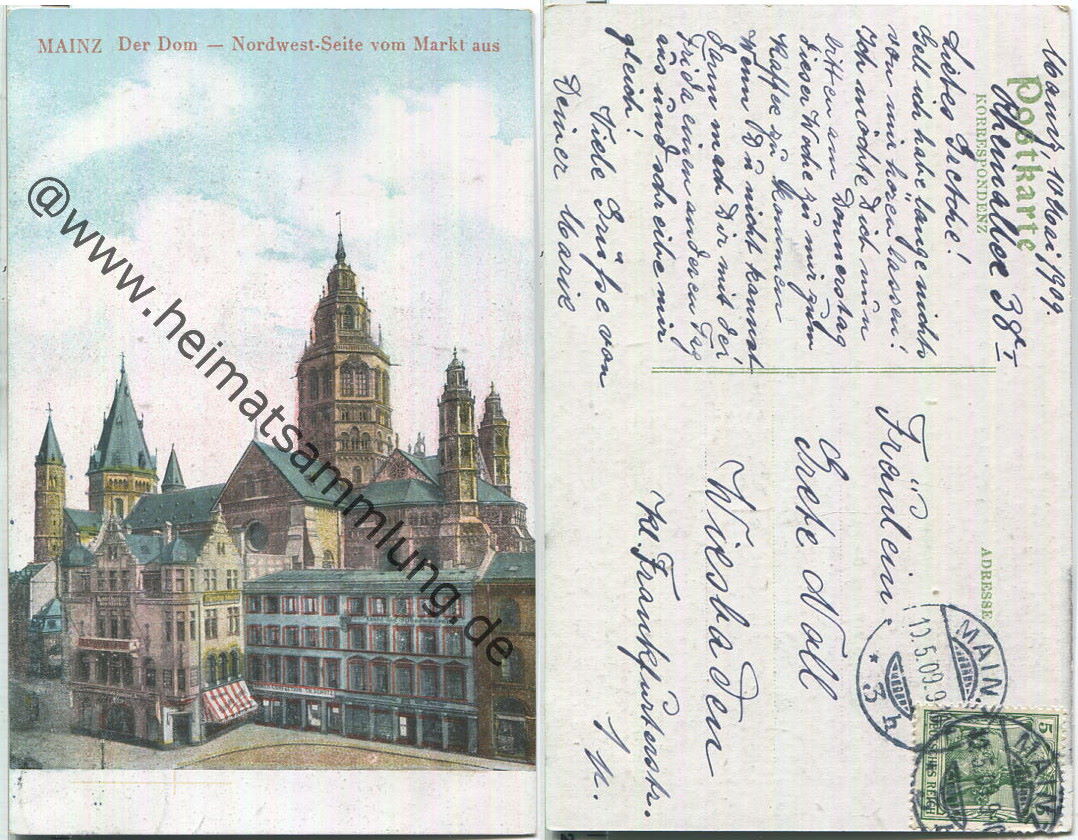 MAINZ Der Dom — Nordwest-Seite vom Markt aus
@www.heimatsammlung.de
Postkarte
KORRESPONDENZ
Mainz, 10 Mai 1909.
Rheinallee 38 I
Liebes Gretche!
Gell ich habe lange nichts
von mir hören lassen!
Ich möchte Dich nun
bitten am Donnerstag
dieser Woche zu mir zum
Kaffee zu kommen
Wenn Du nicht kannst
dann mach Dir mit der
Frida einen anderen Tag
aus und schreibe mir
gleich!
Viele Grüße von
Deiner Marie
ADRESSE
Fräulein
Grete Noll
Wiesbaden
Kl. Frankfurterstr.
MAINZ
10.5.09.9
* 3 h
MAINZ
5